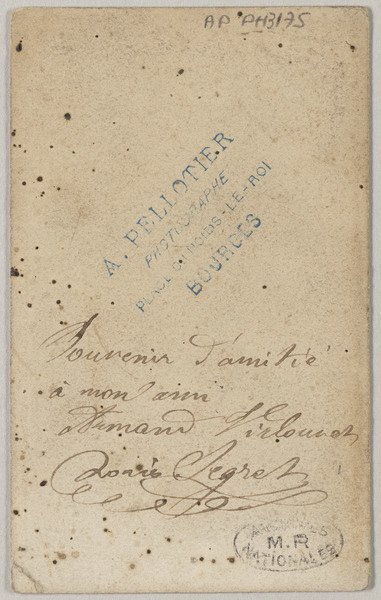 AP PH3175
A. PELLOTIER
PHOTOGRAPHE
PLACE G. POIDS-LE-ROI
BOURGES
Souvenir d'amitié
à mon ami
Armand
Louis Segret
ARCHIVES
M.R
NATIONALES